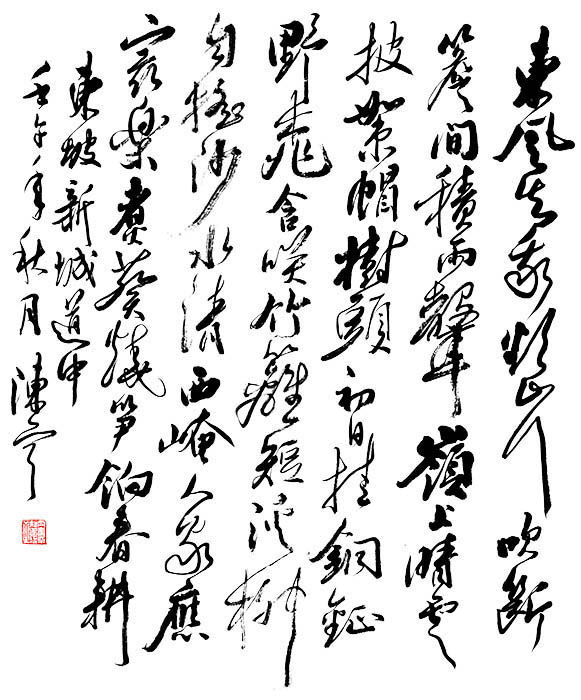 東風知我欲山行吹斷
簷間積雨聲嶺上晴雲
披絮帽樹頭初日挂銅鉦
野桃含咲竹籬短溪柳
自搖沙水清西崦人家應
最樂煮葵燒笋餉春耕
東坡新城道中
壬午年秋月陳